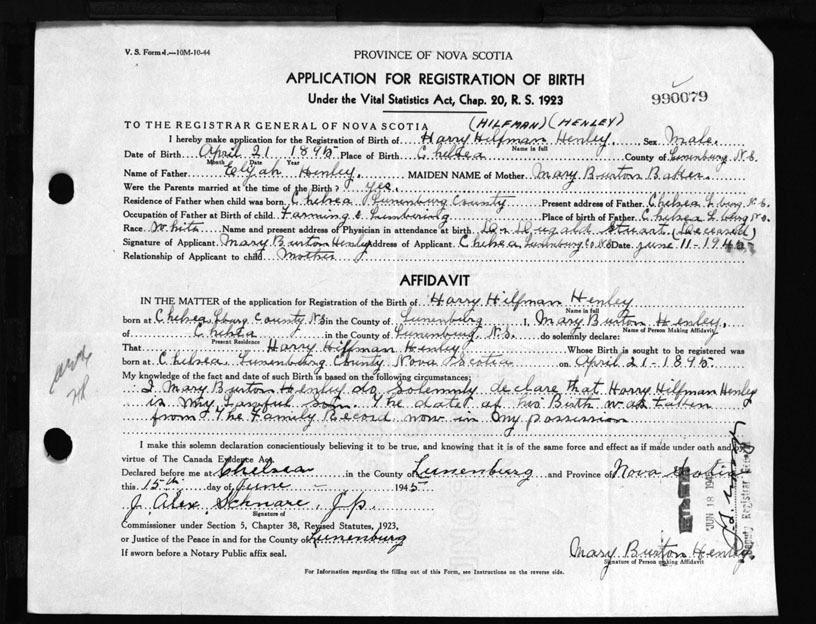 V. S. Form 1.—10M-10-44
PROVINCE OF NOVA SCOTIA
APPLICATION FOR REGISTRATION OF BIRTH
Under the Vital Statistics Act, Chap. 20, R. S. 1923
990079
(HILFMAN) (HENLEY)
TO THE REGISTRAR GENERAL OF NOVA SCOTIA
I hereby make application for the Registration of Birth of Harry Hilfman Henley Sex Male.
Name in full
Date of Birth April 21 1895 Place of Birth Chelsea County of Lunenburg N.S.
Month Date Year
Name of Father Elijah Henley. MAIDEN NAME of Mother Mary Burton Baker.
Were the Parents married at the time of the Birth? yes.
Residence of Father when child was born Chelsea Lunenburg County Present address of Father Chelsea L. burg N.S.
Occupation of Father at Birth of child Farming & Lumbering Place of birth of Father Chelsea L. burg N.S.
Race White Name and present address of Physician in attendance at birth Dr Dugald Stuart (Deceased)
Signature of Applicant Mary Burton Henley Address of Applicant Chelsea Lunenburg Co. N.S. Date June 11-1945
Relationship of Applicant to child Mother
AFFIDAVIT
IN THE MATTER of the application for Registration of the Birth of Harry Hilfman Henley
Name in full
born at Chelsea Lburg County N.S in the County of Lunenburg I, Mary Burton Henley.
Name of Person Making Affidavit
of Chelsea in the County of Lunenburg N.S. do solemnly declare:
Present Residence
That Harry Hilfman Henley Whose Birth is sought to be registered was
Name in full
born at Chelsea, Lunenburg County Nova Scotia on April 21-1895
My knowledge of the fact and date of such Birth is based on the following circumstances:
I Mary Burton Henley do Solemnly declare that Harry Hilfman Henley
is my Lawful Son. The date of his Birth was taken
from the Family Record now in my possession
I make this solemn declaration conscientiously believing it to be true, and knowing that it is of the same force and effect as if made under oath and by
virtue of The Canada Evidence Act.
Declared before me at Chelsea in the County of Lunenburg and Province of Nova Scotia
this 15th day of June 1945
J. Alex. Schnare, J.p.
Signature of
Commissioner under Section 5, Chapter 38, Revised Statutes, 1923,
or Justice of the Peace in and for the County of Lunenburg
If sworn before a Notary Public affix seal.
Mary Burton Henley
Signature of Person making Affidavit
For Information regarding the filling out of this Form, see Instructions on the reverse side.
JUN 18 194
Deputy Registrar General